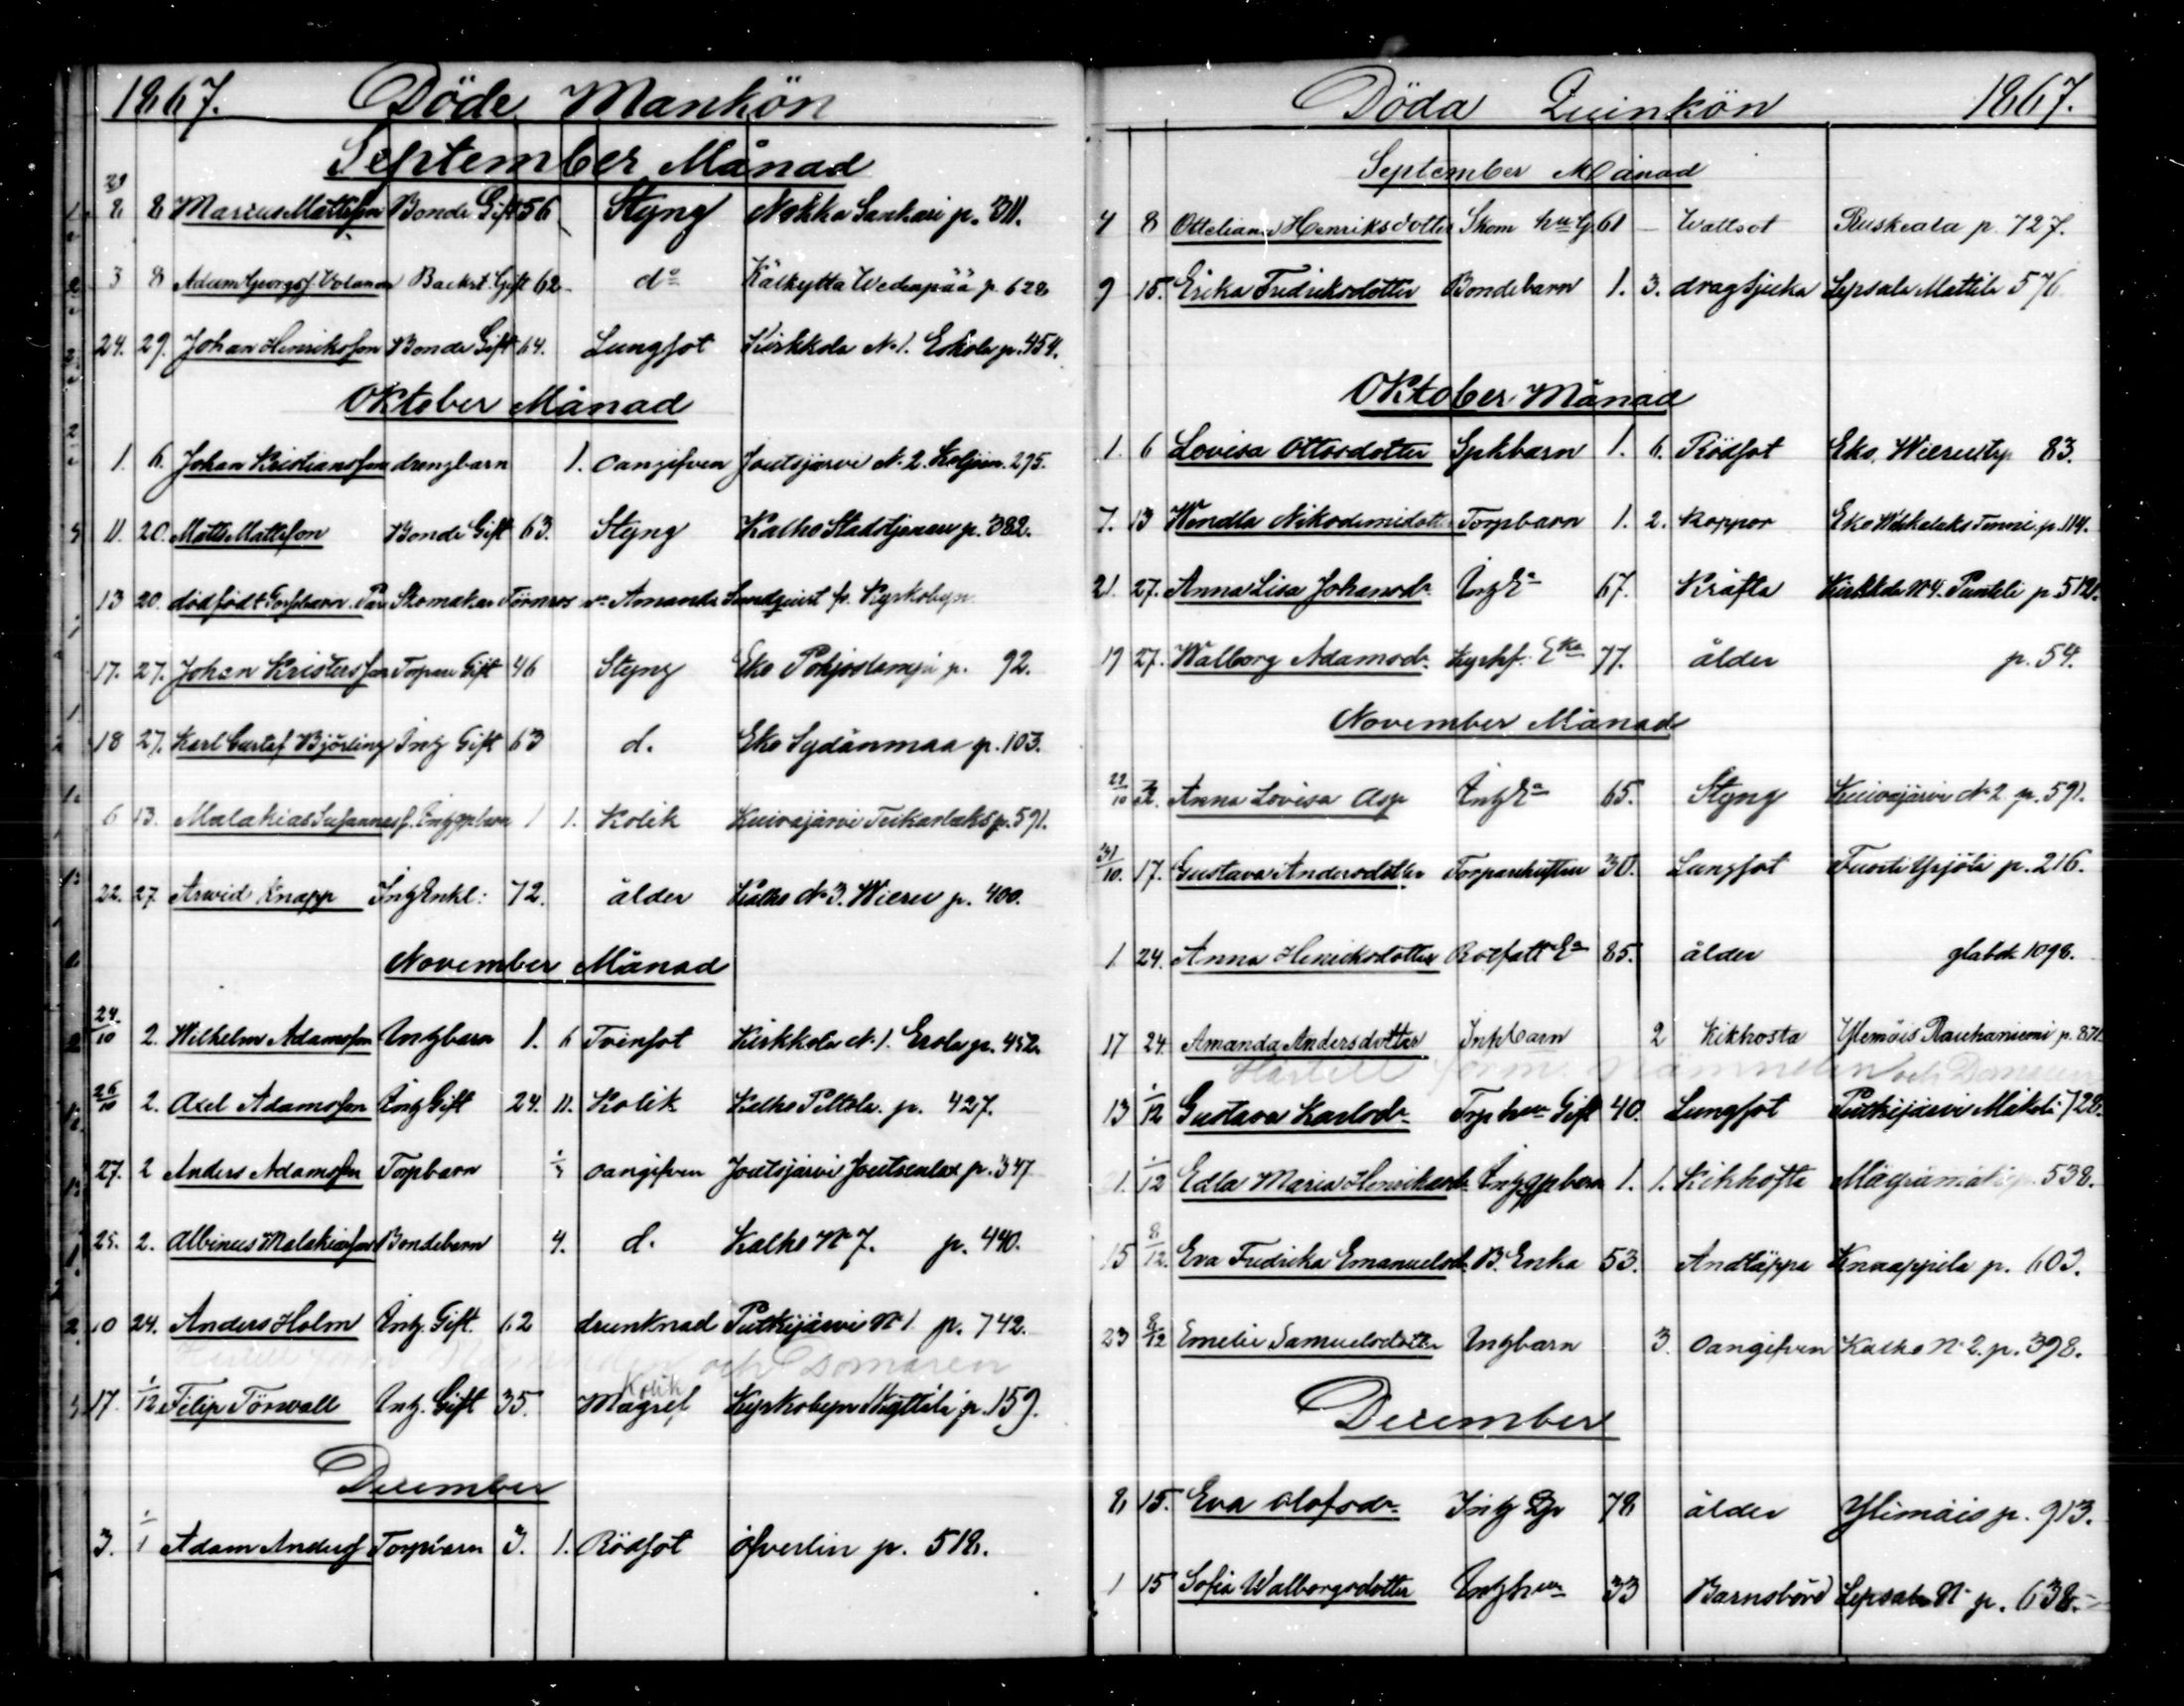 1867. Döde Mankön
September Månad
8 8 Marcus Mattsson Bonde Gift 56 Styng Nokka Sankari p. 311.
3 8 Adam Georgsf. Backst. Gift 62 do Kälkyttä Wedenpää p. 628
24. 29. Johan Henriksson Bonde Gift 64. Lungsot Kirkkola No 1. Eskola p. 454.
Oktober Månad
1. 6. Johan Kristiansson drengbarn 1. oangifven Joutsjärvi No 2. 295.
11 20. Matts Mattsson Bonde Gift 63. Styng Kalho p. 382.
13 20. dödfödt Torpbarn. Skomakar Törnros Amanda Sundqvist fr. Kyrkobyn
17. 27. Johan Kristersson Torpare Gift 46 Styng Eko Pohjoslampi p. 92.
18 27. Karl Gustaf Björling Inh Gift 63 d. Eko Sydänmaa p. 103.
6 13. Malakias Susannasf. 1 1. Kolik Kuivajärvi p. 591.
22. 27 Arwid Knapp Inh Enkl: 72. ålder Kalho No 3. Wieru p. 400.
November Månad
24./10 2. Wilhelm Adamsson Inhbarn 1. 6 Tvinsot Kirkkola No 1. Erola p. 452.
26/10 2. Axel Adamsson Inh Gift 24. 11. Kolik Kalho Piltola p. 427.
27. 2 Anders Adamsson Torpbarn oangifven Joutsjärvi p. 347
25. 2. Albinus Malakiasson Bondebarn 4. d. Kalho No 7. p. 440.
10 24. Anders Holm Inh. Gift. 62 drunknad Putkijärvi No 1 p. 742.
Härtill förm Nämnden och Domaren
Kolik
17. 1/12 Filip Törwall Inh. Gift 35. Magref Kyrkobyn Nyttilä p. 159.
December
3. 1/1 Adam Andersf Torpbarn 3. 1. Rödsot öfverlin p. 518.
Döda Quinkön 1867.
September Månad
4 8 Otteliana Henriksdotter Skom hu G. 61 Wattsot Ruskeala p. 727.
9 15. Erika Fredriksdotter Bondebarn 1. 3. dragsjuka Sepsala Mattila 576.
Oktober Månad
1. 6 Lovisa Ottosdotter Sphbarn 1. 6. Rödsot Eko, Wierustp 83.
7. 13 Wendla Nikodemidotter Torpbarn 1. 2. Koppor Eko p. 114.
21. 27. Anna Lisa Johansdr. Inh Ea 67. Kräfta Kirkkola No 4. Punteli p. 512.
19 27. Walborg Adamsdr. Kyrkf. Eka 77. ålder p. 54.
November Månad
22/10 Anna Lovisa Asp Inh Ea 65. Styng Kuivajärvi No 2 p. 591.
31/10. 17. Gustava Andersdotter Torparehustru 30. Lungsot p. 216.
1 24. Anna Henriksdotter Rotfatt Ea 85. ålder 1098.
17 24. Amanda Andersdotter Inhbarn 2 Kikhosta Ylemäis Rauhaniemi p. 871.
Härtill förm. Nämnden och Domaren
13 1/12 Gustava Karlsdr. Torp hu Gift 40. Lungsot Putkijärvi Mäkelä 728.
1. 1/12 Edla Maria Henriksdr. 1. 1. Kikhosta p. 538.
15 8/12. Eva Fredrika Emanuelsdr. B. Enka 53. Andtäppa Knaappila p. 603.
23 8/12 Emelie Samuelsdotter Inhbarn 3. oangifven Kalho No 2. p. 398.
December
8 15. Eva Olofsdr. Inh 78 ålder Ylimäis p. 913.
1 15 Sofia Walborgsdotter Inh hu 33 Barnsbörd Sepsala p. 638.